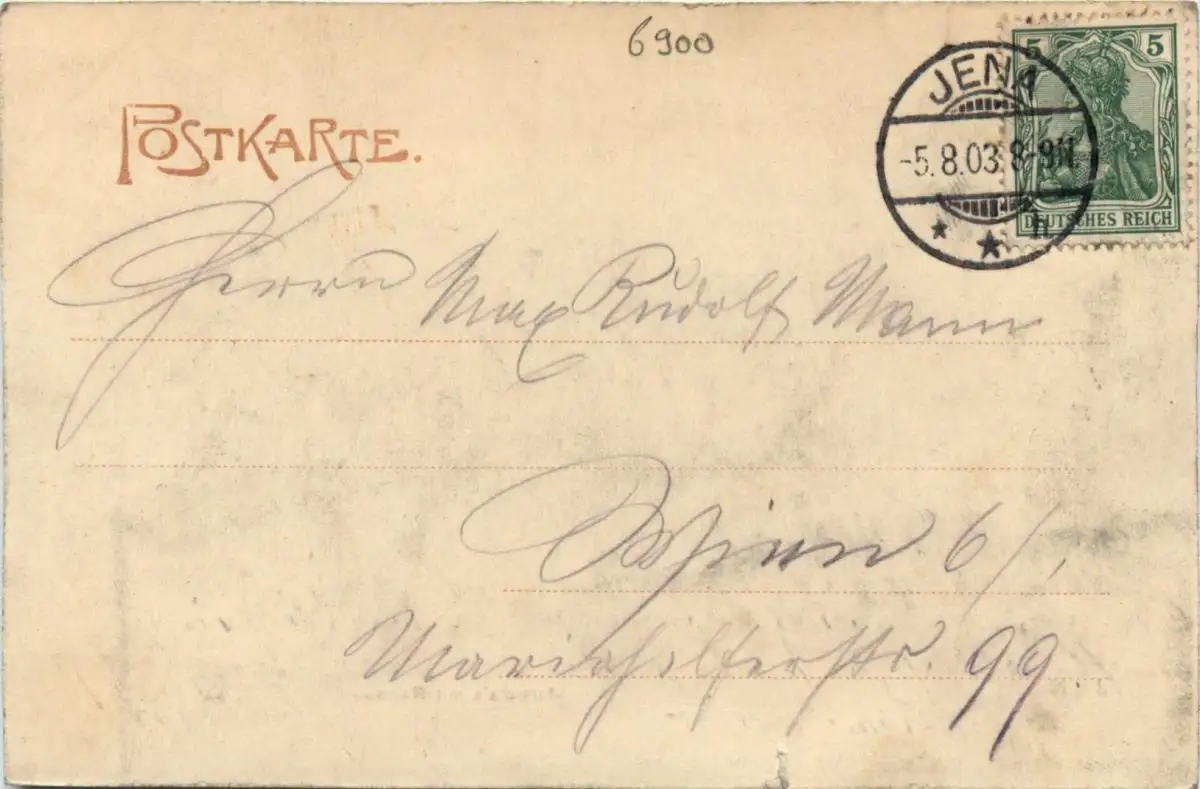 6900
POSTKARTE.
JENA
-5.8.03 8-9N.
* * h
5 5
DEUTSCHES REICH
Herrn Max Rudolf Mann
Wien 6/,
Mariahilferstr. 99